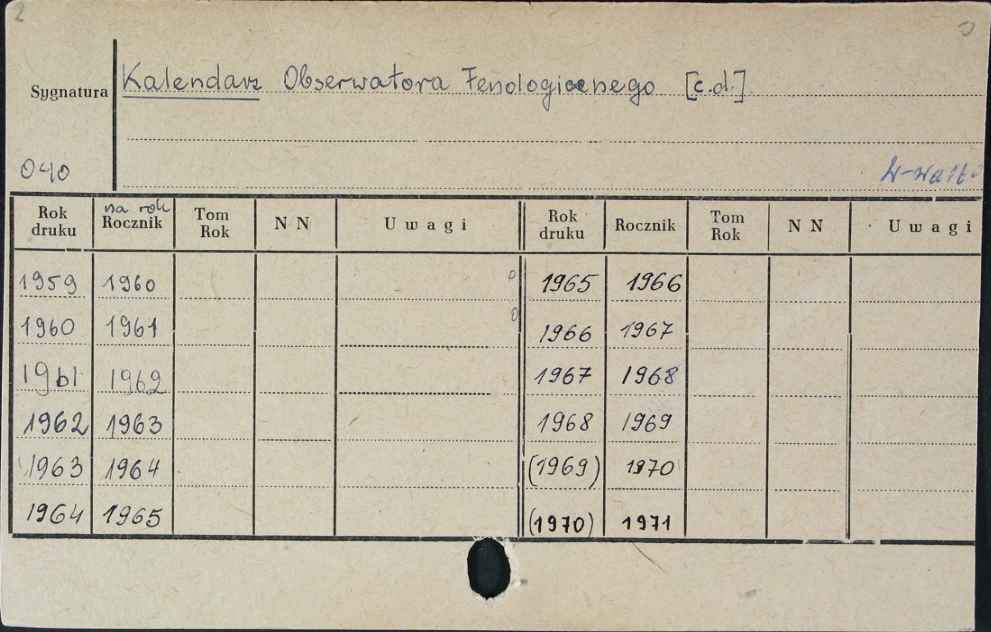 2
Sygnatura
Kalendarz Obserwatora Fenologicznego [c.d.]
040
W-wa
Rok druku
na rok
Rocznik
Tom Rok
N N
Uwagi
Rok druku
Rocznik
Tom Rok
N N
Uwagi
1959 1960 1965 1966
1960 1961 1966 1967
1961 1962 1967 1968
1962 1963 1968 1969
1963 1964 (1969) 1970
1964 1965 (1970) 1971